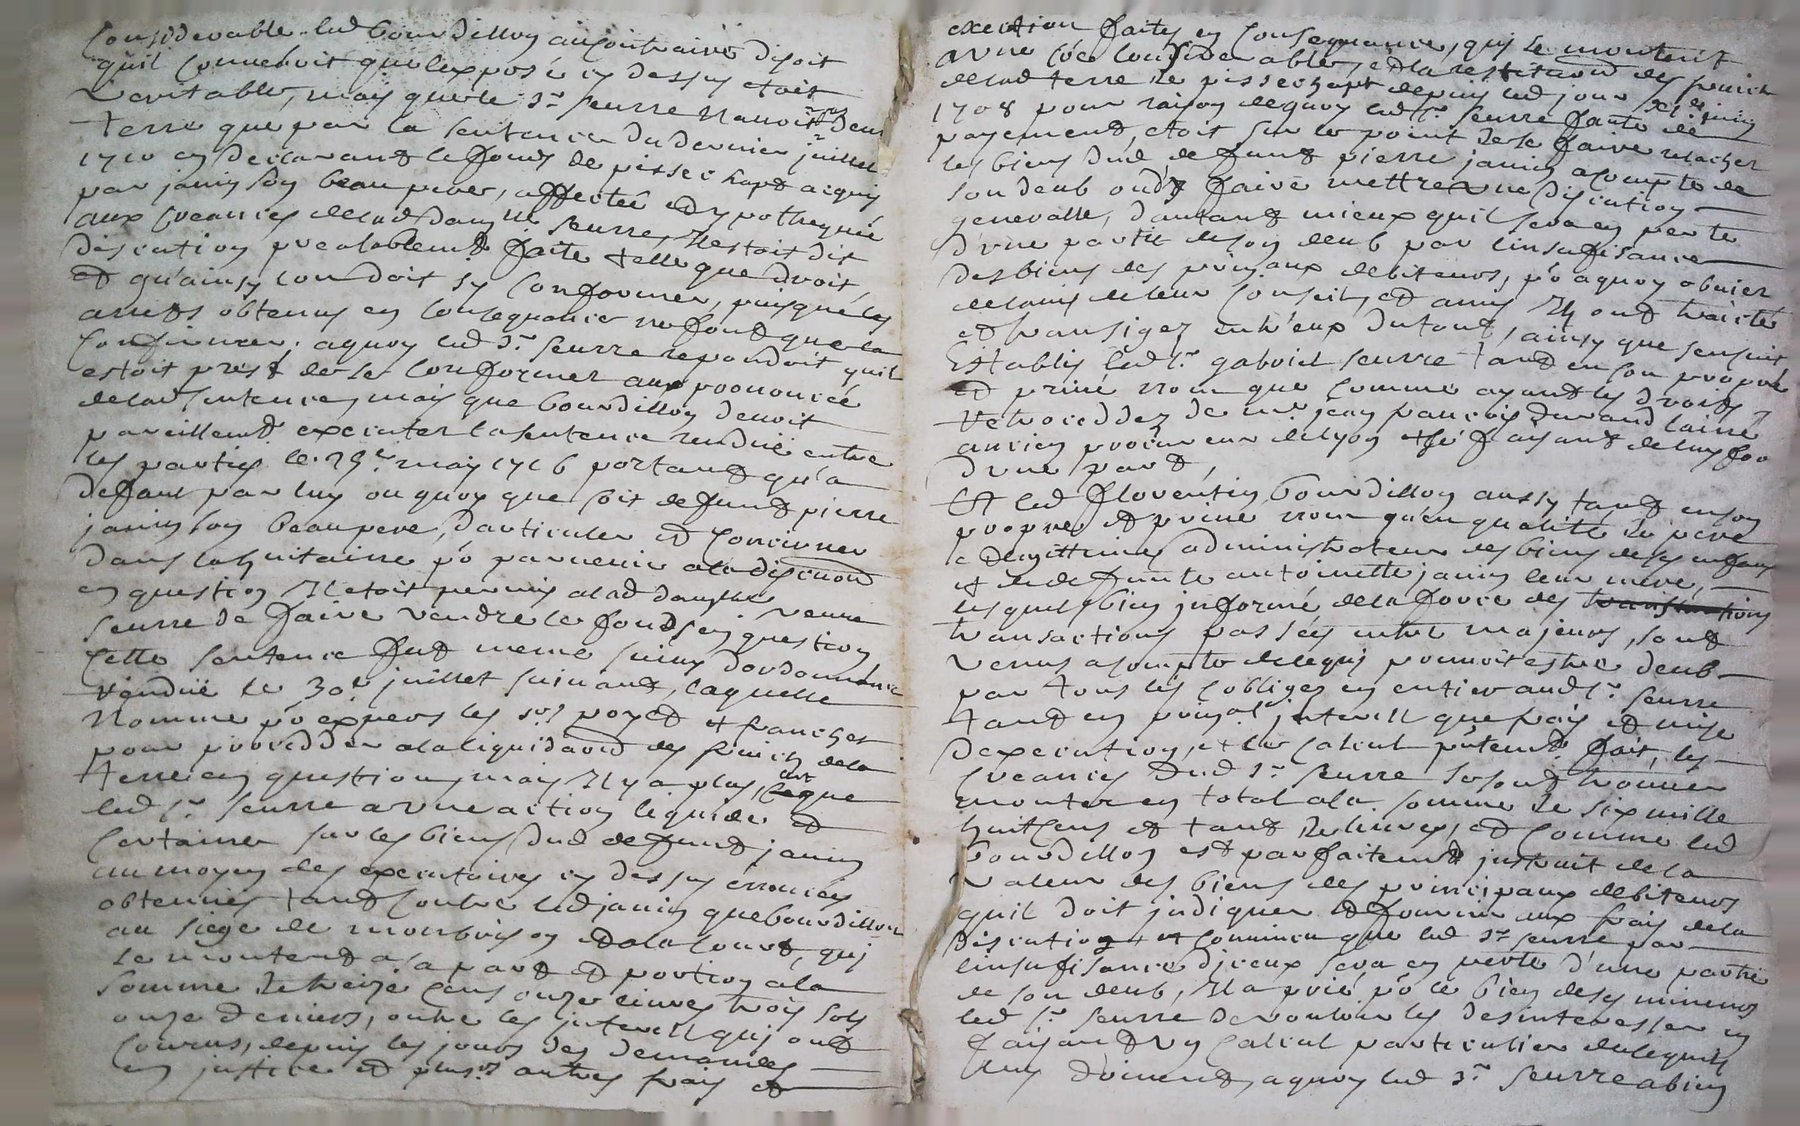 Considerable. led bourdillon au contraire disoit
quil Convenoit que lexposé cy dessus etoit
Veritable, mais que le Sr seurre n'avoit
terre que par la sentence du dernier juillet
1710 en declarant le fonds de pissechapt acquis
par janin son beau pere, affecté et ypothequé
aux creances de lad damlle seurre, Il estoit dit
discution prealablemt faite telle que droit,
et qu'ainsy lon doit sy Conformer, puisque les
arrets obtenus en Consequance ne font que la
Confirmer. aquoy led Sr seurre repondoit quil
estoit prest de se Conformer aux prononcé
de lad sentence, mais que bourdillon devoit
pareillemt executer la sentence rendue entre
les parties le 29e may 1716 portant qu'a
defaut par luy ou quoy que soit defunt pierre
janin son beau pere, d'articuler et Conciner
dans la huitaine po parvenir a la discution
en question Il etoit permis a lad damlle veuve
seurre de faire vendre le fond en question
Cette sentence fut meme suivy d'ordonnance
rendue le 30e juillet suivant, laquelle
Nomme po expers les srs poyet et franchet
pour proceder a la liquidaon des fruits de la
terre en question, mais Il y a plus, car que
led Sr seurre a une action liquide et
Certaine sur les biens dud defunt janin
au moyen des executoires cy dessus enoncés
obtenues tant Contre led janin que bourdillon
au siege de monbrison et a la Court, qui
se montent a sa part et portion a la
somme de treize Cens onze livres trois sols
onze deniers, outre les interets qui ont
Courus, depuis les jours des demandes
en justice et plusrs autres frais et
execution faits en Consequance, qui se montent
a une Considerable, et la restitaon des fruits
de lad terre de pissechapt depuis led jour
1708 pour raison de quoy led Sr seurre faute de
payement, etoit sur le point de se faire relacher
les biens dud defunt pierre janin a compte de
son deub ou d'y faire mettre une discution
generalle, d'autant mieux quil sera en perte
d'une partie de son deub par linsufisance
des biens des prinaux debiteurs, po aquoy obvier
de lavis de leur Conseil, et amis Ils ont traicté
et transigez entr'eux du tout, ainsy que sensuit
Establis led Sr gabriel seurre tant en son propre
et privé nom que Comme ayant les droits
Retroceddez de mr jean françois durand lainé
ancien procureur de lyon et se faisant de luy for
d'une part,
Et led florentin bourdillon aussy tant en son
propre et privé nom qu'en qualité de pere
et legittime administrateur des biens de ses enfans
et de defunte antoinette janin leur mere,
lesquels bien informé de la force des
transactions passées entre majeurs, sont
venus a compte de ce qui pouvoit estre deub
par tous les Cobligez en entier aud Sr seurre
tant en prinal interets que frais et mise
d'execution, et le Calcul prntemt fait, les
Creances dud Sr seurre se sont trouvez
monter en total a la somme de six mille
huit Cens et tant de livres, et Comme led
bourdillon est parfaitemt instruit de la
valeur des biens des principaux debiteurs
quil doit indiquer et fournir aux frais de la
discution et Convincu que led Sr seurre par
linsufisance diceux sera en perte d'une partie
de son deub, Il a prié po le bien de ses mineurs
led Sr seurre de vouloir les desinteresser en
faisant un Calcul particulier de ce quils
luy doivent, aquoy led Sr seurre a bien